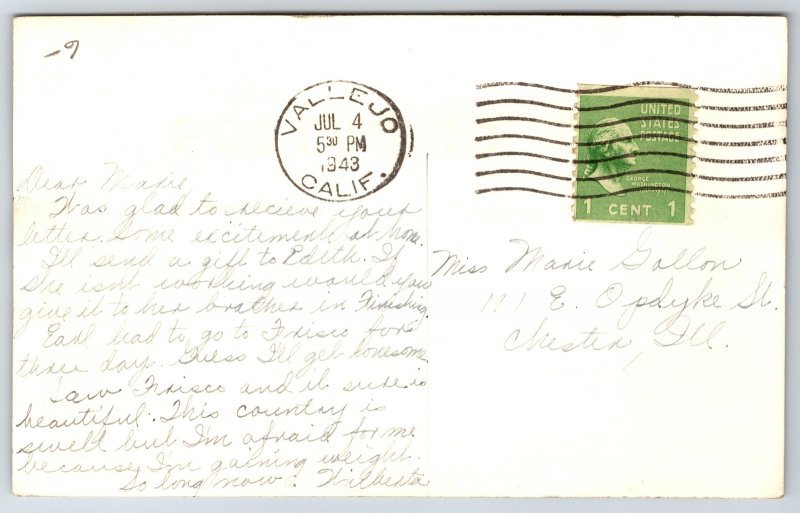 -9
VALLEJO
JUL 4
5 30 PM
1943
CALIF.
UNITED
STATES
POSTAGE
GEORGE
WASHINGTON
1 CENT 1
Dear Marie,
Was glad to recieve your
letter. Some excitement at home.
I'll send a gift to Edith. If
she isn't working would you
give it to her brother in Finishing.
Earl had to go to Frisco for
three day. Guess I'll get lonesome.
Saw Frisco and it sure is
beautiful. This country is
swell but I'm afraid for me
because I'm gaining weight.
So long now. Wilberta
Miss Marie Gollon
111 E. Opdyke St.
Chester, Ill.